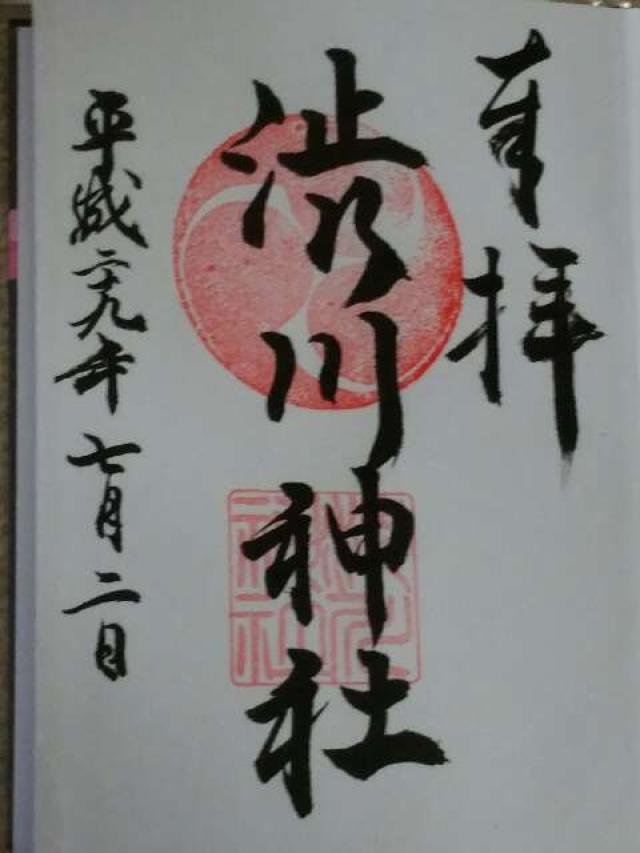 奉拝
渋川神社
平成二十九年七月二日